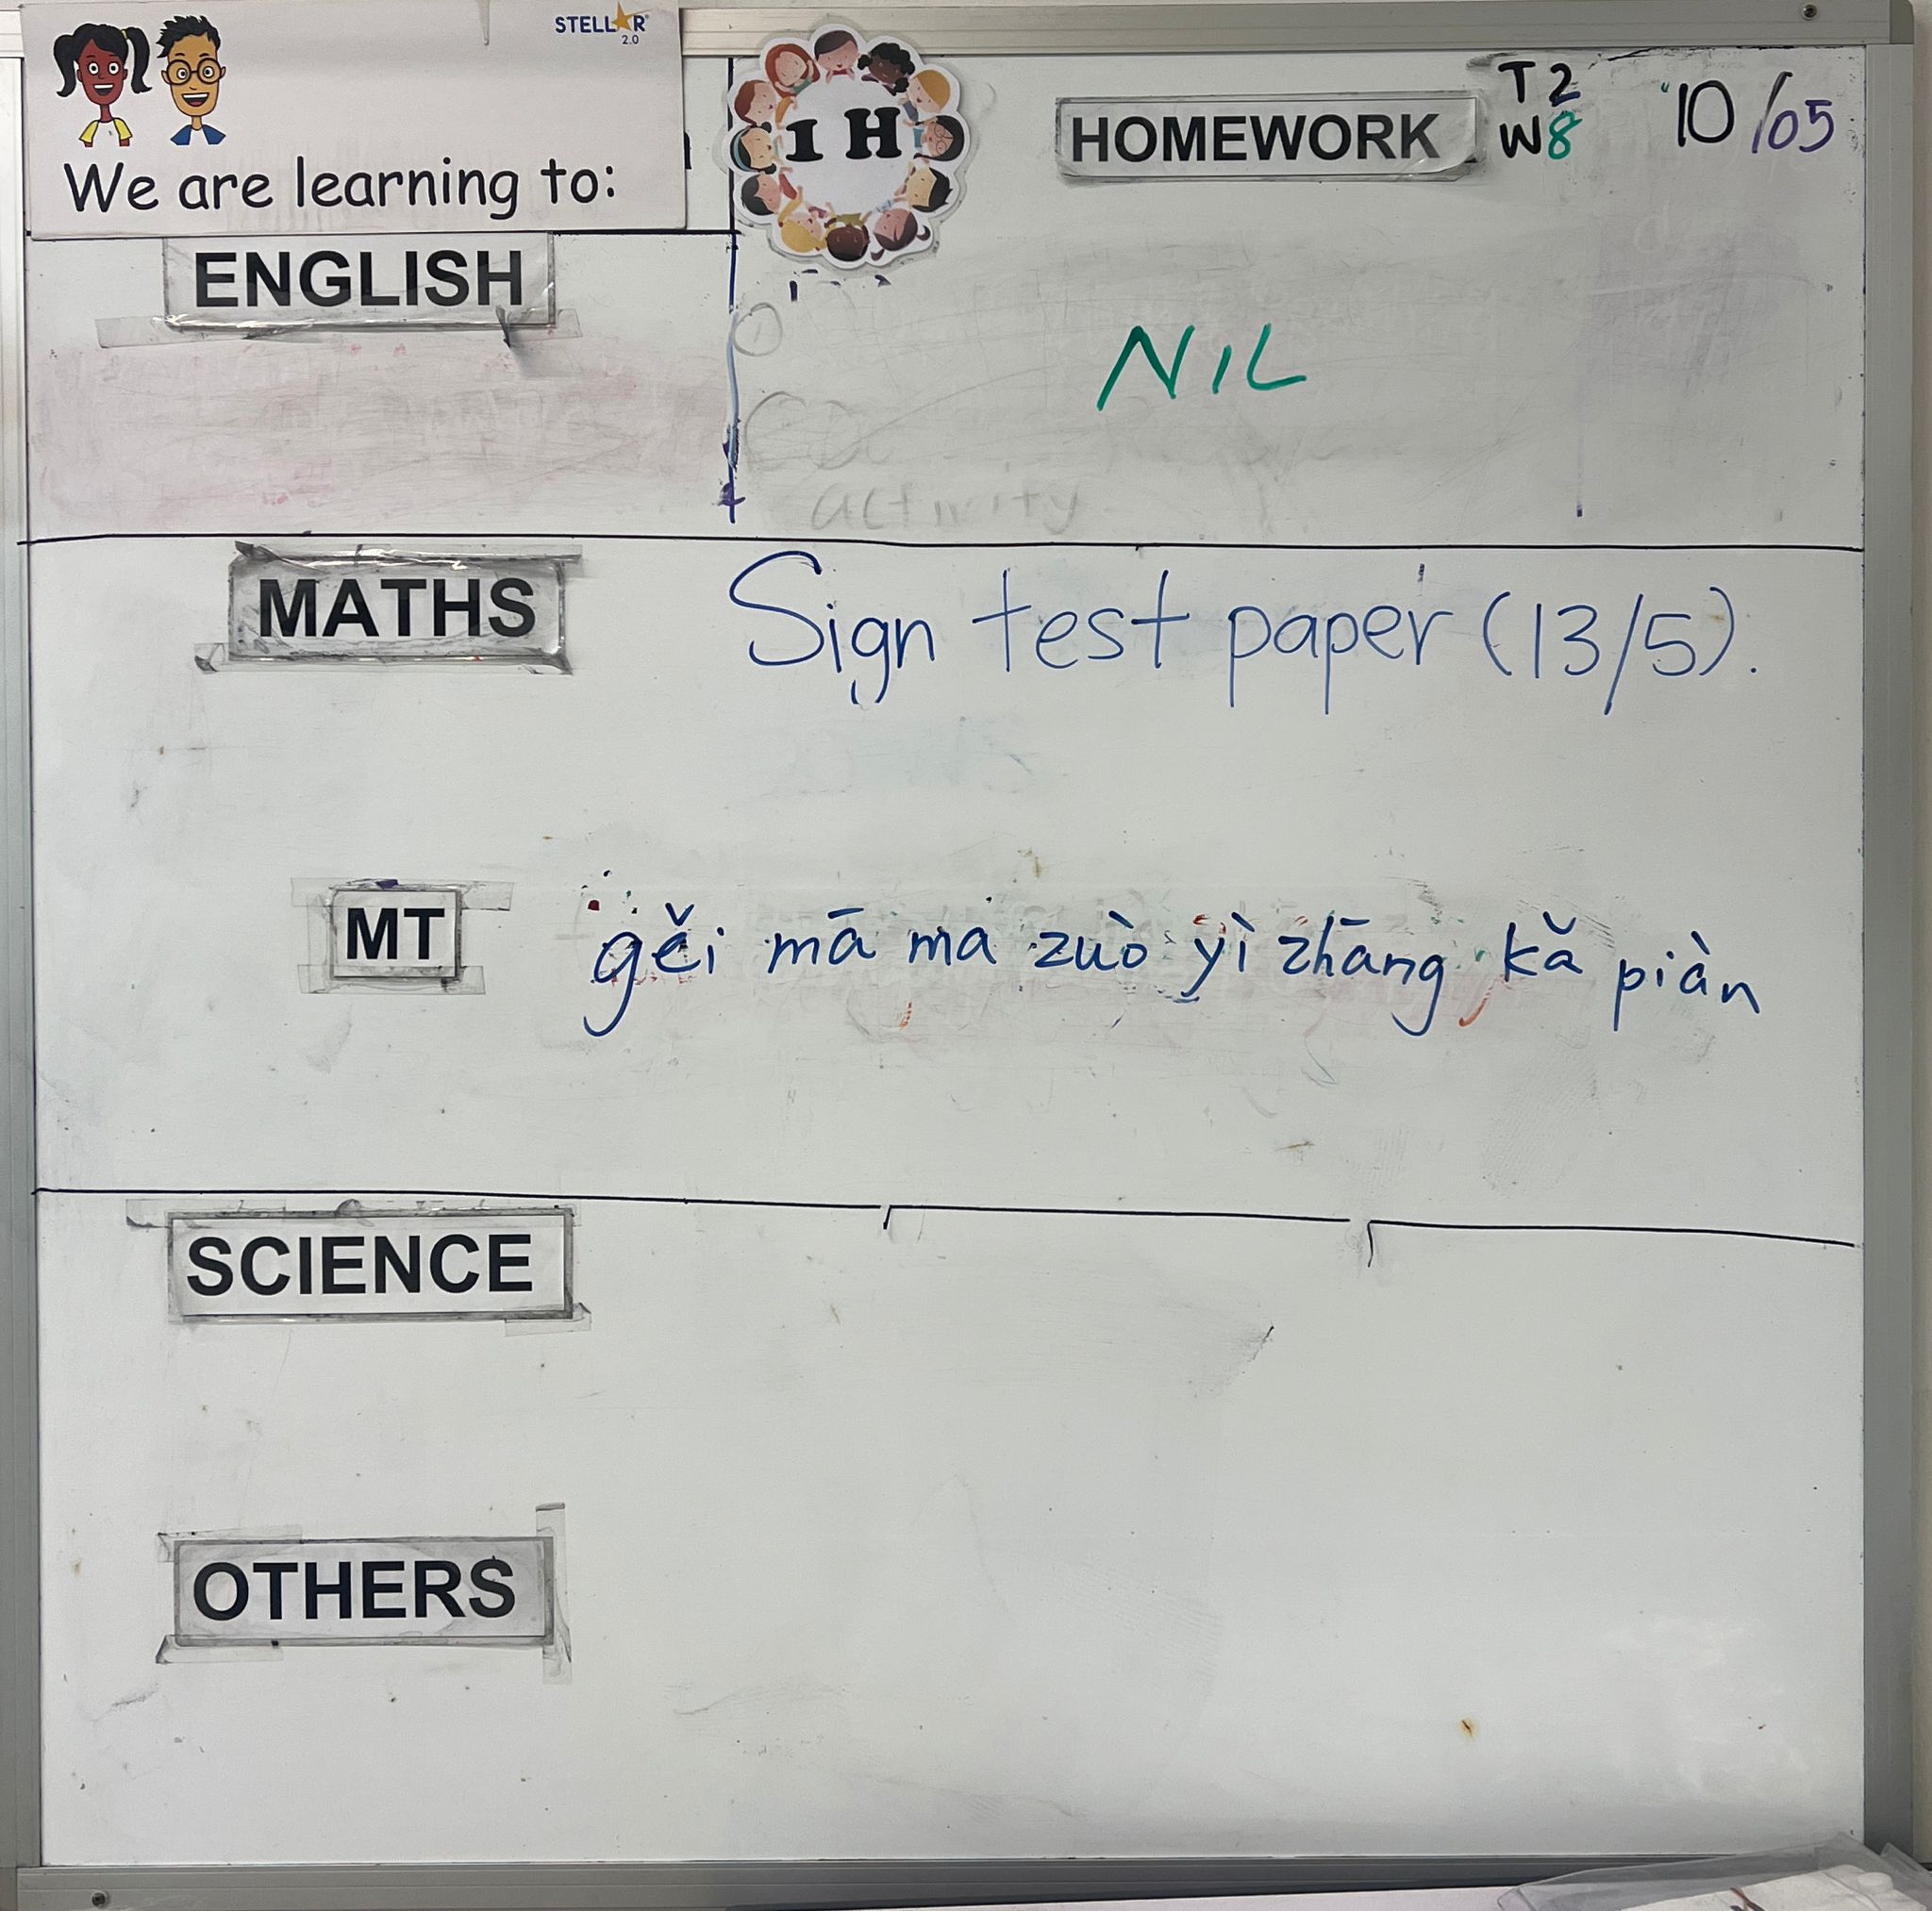 STELLAR
2.0
We are learning to:
1 H
HOMEWORK
T2
W8
10/05
ENGLISH
NIL
activity
MATHS
Sign test paper (13/5).
MT
gěi mā ma zuò yì zhāng kǎ piàn
SCIENCE
OTHERS